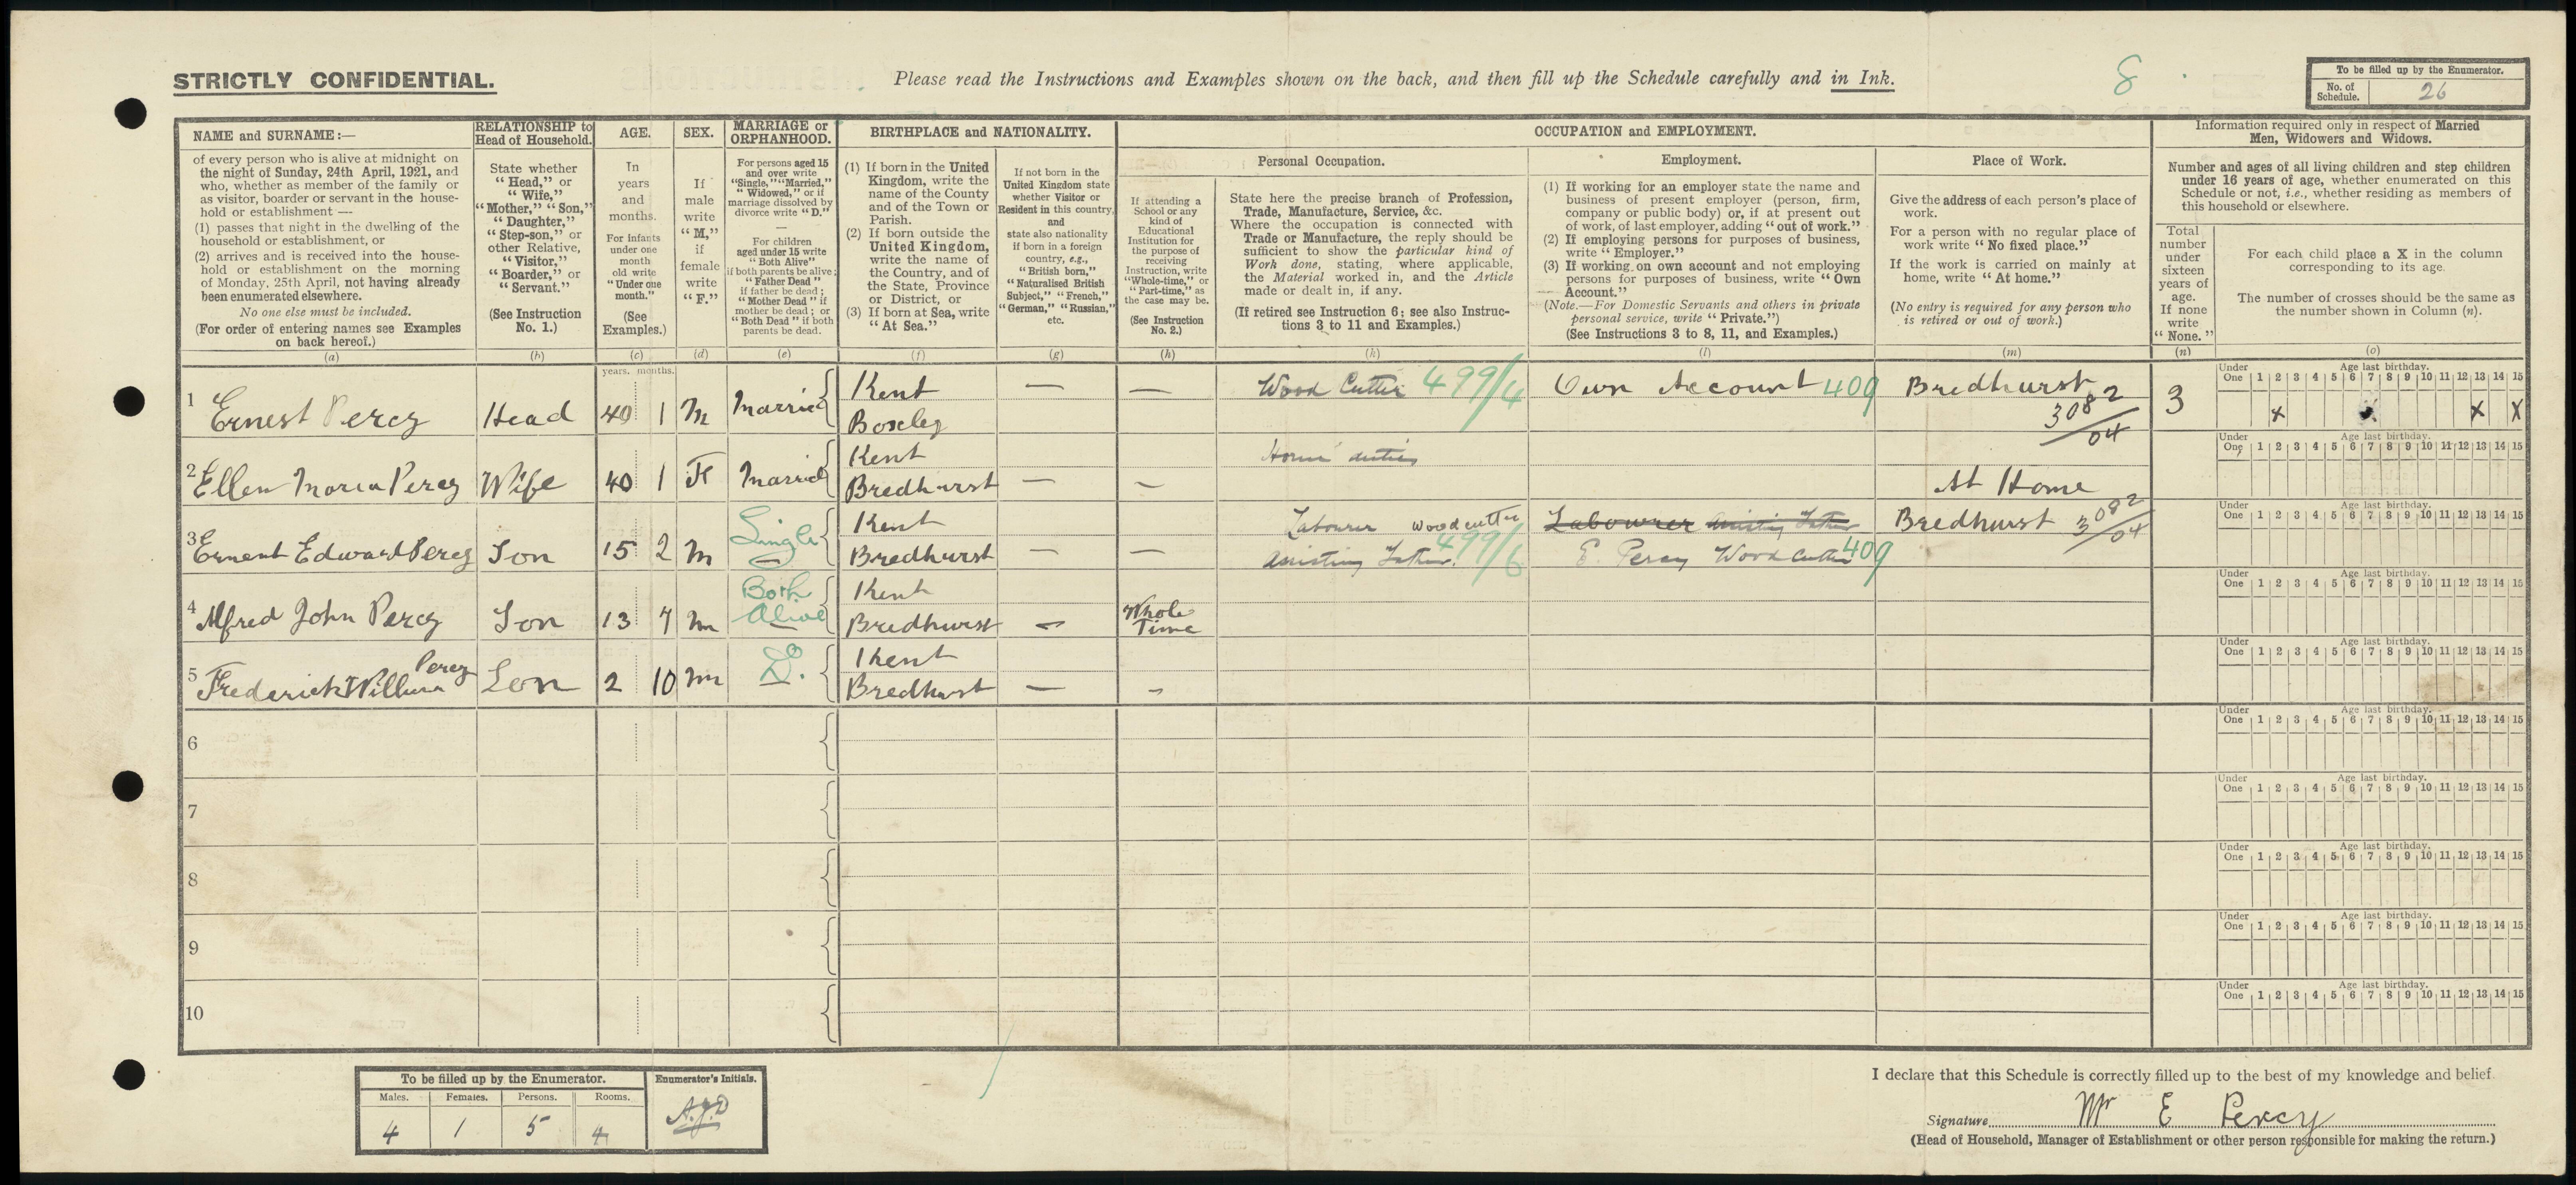 STRICTLY CONFIDENTIAL.
Please read the Instructions and Examples shown on the back, and then fill up the Schedule carefully and in Ink.
8
To be filled up by the Enumerator.
No. of Schedule. 26
NAME and SURNAME:—
of every person who is alive at midnight on
the night of Sunday, 24th April, 1921, and
who, whether as member of the family or
as visitor, boarder or servant in the house-
hold or establishment —
(1) passes that night in the dwelling of the
household or establishment, or
(2) arrives and is received into the house-
hold or establishment on the morning
of Monday, 25th April, not having already
been enumerated elsewhere.
No one else must be included.
(For order of entering names see Examples
on back hereof.)
(a)
RELATIONSHIP to
Head of Household.
State whether
"Head," or
"Wife,"
"Mother," "Son,"
"Daughter,"
"Step-son," or
other Relative,
"Visitor,"
"Boarder," or
"Servant."
(See Instruction
No. 1.)
(b)
AGE.
In
years
and
months.
For infants
under one
month
old write
"Under one
month."
(See
Examples.)
(c)
SEX.
If
male
write
"M,"
if
female
write
"F."
(d)
MARRIAGE or
ORPHANHOOD.
For persons aged 15
and over write
"Single," "Married,"
"Widowed," or if
marriage dissolved by
divorce write "D."
—
For children
aged under 15 write
"Both Alive"
if both parents be alive;
"Father Dead"
if father be dead;
"Mother Dead" if
mother be dead; or
"Both Dead" if both
parents be dead.
(e)
BIRTHPLACE and NATIONALITY.
(1) If born in the United
Kingdom, write the
name of the County
and of the Town or
Parish.
(2) If born outside the
United Kingdom,
write the name of
the Country, and of
the State, Province
or District, or
(3) If born at Sea, write
"At Sea."
(f)
If not born in the
United Kingdom state
whether Visitor or
Resident in this country,
and
state also nationality
if born in a foreign
country, e.g.,
"British born,"
"Naturalised British
Subject," "French,"
"German," "Russian,"
etc.
(g)
OCCUPATION and EMPLOYMENT.
If attending a
School or any
kind of
Educational
Institution for
the purpose of
receiving
Instruction, write
"Whole-time," or
"Part-time," as
the case may be.
(See Instruction
No. 2.)
(h)
Personal Occupation.
State here the precise branch of Profession,
Trade, Manufacture, Service, &c.
Where the occupation is connected with
Trade or Manufacture, the reply should be
sufficient to show the particular kind of
Work done, stating, where applicable,
the Material worked in, and the Article
made or dealt in, if any.
(If retired see Instruction 6; see also Instruc-
tions 3 to 11 and Examples.)
(k)
Employment.
(1) If working for an employer state the name and
business of present employer (person, firm,
company or public body) or, if at present out
of work, of last employer, adding "out of work."
(2) If employing persons for purposes of business,
write "Employer."
(3) If working on own account and not employing
persons for purposes of business, write "Own
Account."
(Note.—For Domestic Servants and others in private
personal service, write "Private.")
(See Instructions 3 to 8, 11, and Examples.)
(l)
Place of Work.
Give the address of each person's place of
work.
For a person with no regular place of
work write "No fixed place."
If the work is carried on mainly at
home, write "At home."
(No entry is required for any person who
is retired or out of work.)
(m)
Information required only in respect of Married
Men, Widowers and Widows.
Number and ages of all living children and step children
under 16 years of age, whether enumerated on this
Schedule or not, i.e., whether residing as members of
this household or elsewhere.
Total
number
under
sixteen
years of
age.
If none
write
"None."
(n)
For each child place a X in the column
corresponding to its age.
The number of crosses should be the same as
the number shown in Column (n).
(o)
years. months.
Under One Age last birthday. 1 2 3 4 5 6 7 8 9 10 11 12 13 14 15
1 Ernest Percy Head 40 1 M Married Kent Boxley — — Wood Cutter 499/4 Own Account 409 Bredhurst 3082/04 3 x x X
Under One Age last birthday. 1 2 3 4 5 6 7 8 9 10 11 12 13 14 15
2 Ellen Maria Percy Wife 40 1 F Married Kent Bredhurst — — Home duties At Home
Under One Age last birthday. 1 2 3 4 5 6 7 8 9 10 11 12 13 14 15
3 Ernest Edward Percy Son 15 2 M Single Kent Bredhurst — — Labourer Woodcutter assisting Father 499/6 Labourer assisting Father E. Percy Wood Cutter 409 Bredhurst 3082/04
Under One Age last birthday. 1 2 3 4 5 6 7 8 9 10 11 12 13 14 15
4 Alfred John Percy Son 13 7 M Both Alive Kent Bredhurst — Whole Time
Under One Age last birthday. 1 2 3 4 5 6 7 8 9 10 11 12 13 14 15
5 Frederick William Percy Son 2 10 M Do. Kent Bredhurst — -
Under One Age last birthday. 1 2 3 4 5 6 7 8 9 10 11 12 13 14 15
6
Under One Age last birthday. 1 2 3 4 5 6 7 8 9 10 11 12 13 14 15
7
Under One Age last birthday. 1 2 3 4 5 6 7 8 9 10 11 12 13 14 15
8
Under One Age last birthday. 1 2 3 4 5 6 7 8 9 10 11 12 13 14 15
9
Under One Age last birthday. 1 2 3 4 5 6 7 8 9 10 11 12 13 14 15
10
To be filled up by the Enumerator.
Males. Females. Persons. Rooms.
4 1 5 4
Enumerator's Initials.
A.J.D
I declare that this Schedule is correctly filled up to the best of my knowledge and belief
Signature Mr E Percy
(Head of Household, Manager of Establishment or other person responsible for making the return.)